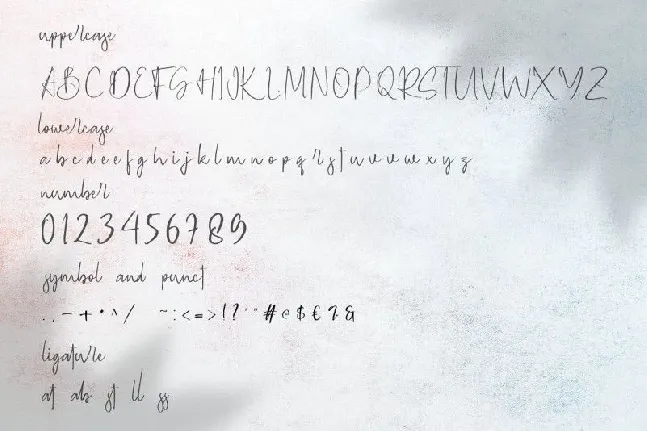 uppercase
ABCDEFGHIJKLMNOPQRSTUVWXYZ
lowercase
a b c d e e f g h i j k l m n o p q r s t u v v w x y z
number
0123456789
symbol and punct
. , - + • ^ / ~ : < = > ! ? " " # @ $ € ? &
ligature
at ab st il ss